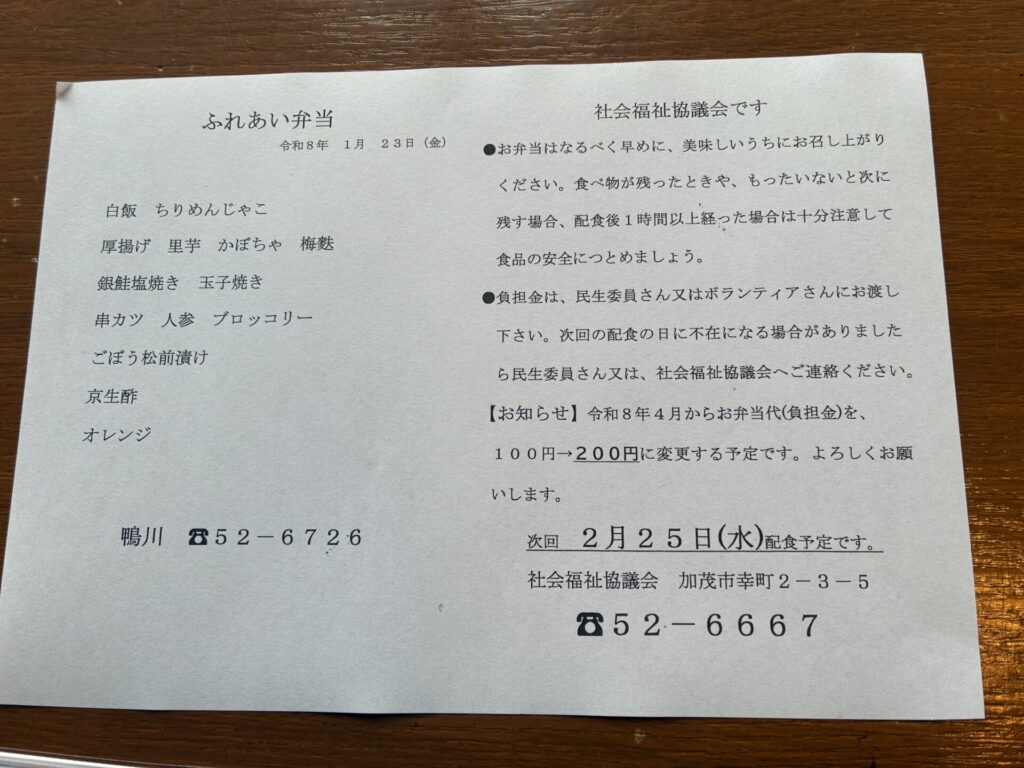 ふれあい弁当
令和８年　１月　２３日（金）
白飯　ちりめんじゃこ
厚揚げ　里芋　かぼちゃ　梅麩
銀鮭塩焼き　玉子焼き
串カツ　人参　ブロッコリー
ごぼう松前漬け
京生酢
オレンジ
鴨川　☎５２－６７２６
社会福祉協議会です
●お弁当はなるべく早めに、美味しいうちにお召し上がり
ください。食べ物が残ったときや、もったいないと次に
残す場合、配食後１時間以上経った場合は十分注意して
食品の安全につとめましょう。
●負担金は、民生委員さん又はボランティアさんにお渡し
下さい。次回の配食の日に不在になる場合がありました
ら民生委員さん又は、社会福祉協議会へご連絡ください。
【お知らせ】令和８年４月からお弁当代(負担金)を、
１００円→２００円に変更する予定です。よろしくお願
いします。
次回　２月２５日(水)配食予定です。
社会福祉協議会　加茂市幸町２－３－５
☎５２－６６６７